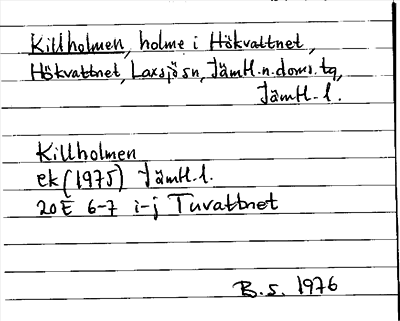 Killholmen, holme i Hökvattnet,
Hökvattnet, Laxsjö sn, Jämtl.n.doms.tg,
Jämtl.l.
Killholmen
ek (1975) Jämtl.l.
20E 6-7 i-j Tuvattnet
B.S. 1976